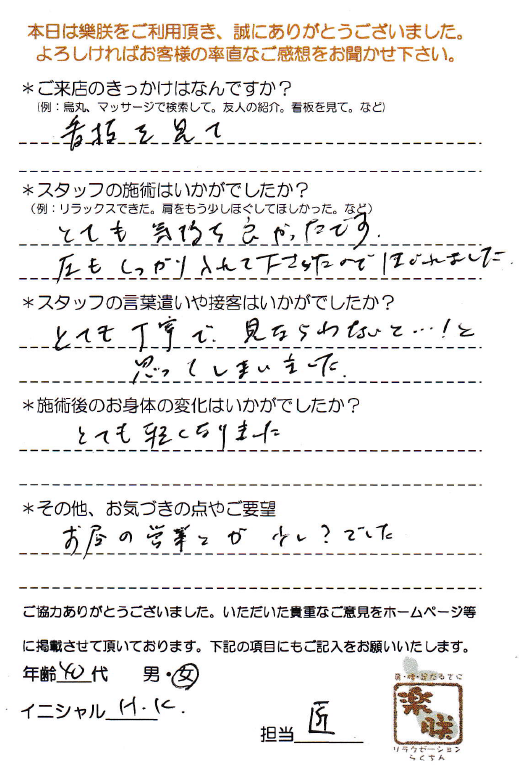 本日は樂朕をご利用頂き、誠にありがとうございました。
よろしければお客様の率直なご感想をお聞かせ下さい。
＊ご来店のきっかけはなんですか？
(例：烏丸、マッサージで検索して。友人の紹介。看板を見て。など)
看板を見て
＊スタッフの施術はいかがでしたか？
(例：リラックスできた。肩をもう少しほぐしてほしかった。など)
とても気持ち良かったです.
圧もしっかり入れて下さったのでほぐれました
＊スタッフの言葉遣いや接客はいかがでしたか？
とても丁寧で、見ならわないと…!と
思ってしまいました.
＊施術後のお身体の変化はいかがでしたか？
とても軽くなりました
＊その他、お気づきの点やご要望
お昼の営業とか 少し？でした
ご協力ありがとうございました。いただいた貴重なご意見をホームページ等
に掲載させて頂いております。下記の項目にもご記入をお願いいたします。
年齢 40 代 男・女
イニシャル H.K.
担当 匠
樂朕
リラクゼーション
らくちん